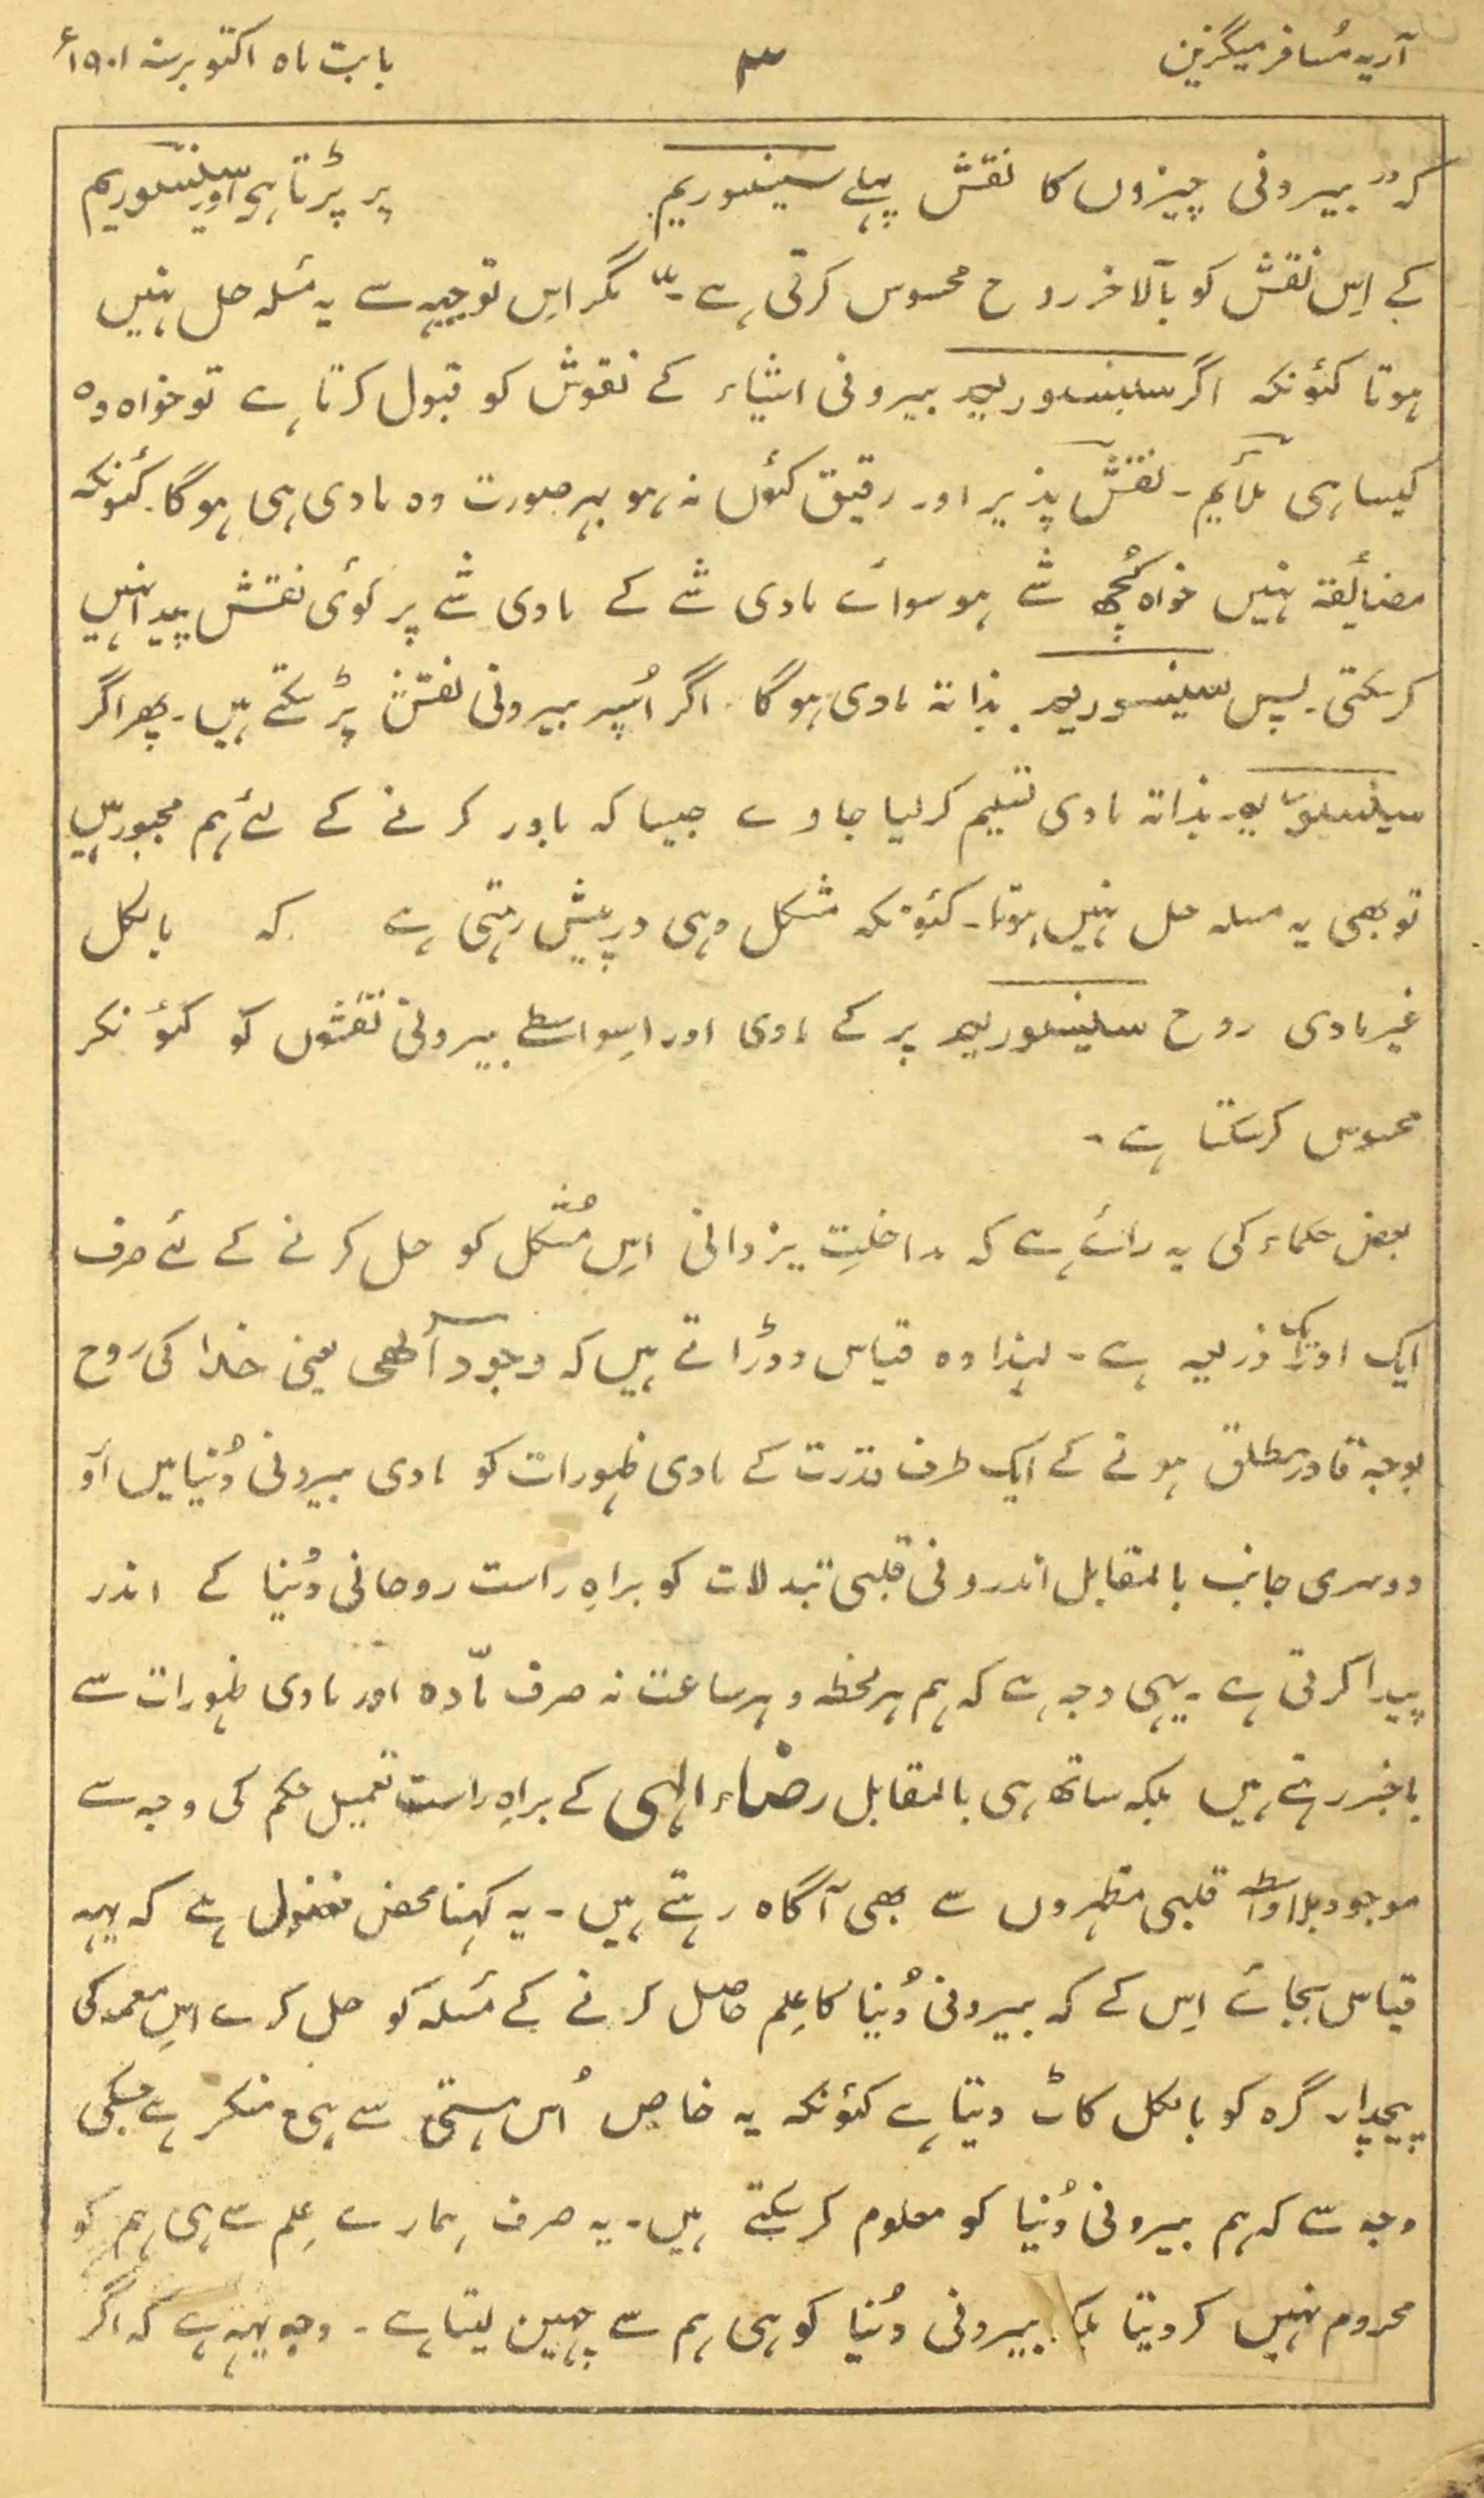 آریہ مُسافر میگزین ۳ بابت ماہ اکتوبر سنہ ۱۹۰۱ء
کہ "بیرونی چیزوں کا نقش پہلے سینسوریم پر پڑتا ہی اور سینسوریم
کے اِس نقش کو بآلاخر روح محسوس کرتی ہے۔" مگر اِس توجیہہ سے یہ مسٔلہ حل نہیں
ہوتا کیٔونکہ اگر سینسوریم بیرونی اشیاء کے نقوش کو قبول کرتا ہے تو خواہ وہ
کیسا ہی ملاُیم۔ نقش پذیر اور رقیق کیٔوں نہ ہو بہر صورت وہ مادی ہی ہوگا۔ کیٔونکہ
مضایٔقہ نہیں خواہ کُچھ شے ہو سوائے مادی شے کے مادی شے پر کوئی نقش پیدا نہیں
کرسکتی۔ پس سینسوریم بذاتہ مادی ہوگا۔ اگر اُسپر بیرونی نقش پڑ سکتے ہیں۔ پھر اگر
سینسوریم بذاتہ مادی تسلیم کرلیا جاوے جیسا کہ باور کرنے کے لئے ہم مجبور ہیں
تو بھی یہ مسٔلہ حل نہیں ہوتا۔ کیٔونکہ مشکل وہی درپیش رہتی ہے کہ بالکل
غیر مادی روح سینسوریم پر کے مادی اور اِسواسطے بیرونی نقشوں کو کیٔونکر
محسوس کرسکتا ہے۔
بعض حکماء کی یہ رائے ہے کہ مداخلتِ یزدانی اِس مُشکل کو حل کرنے کے لئے صرف
ایک اور ذریعہ ہے۔ لہٰذا وہ قیاس دوڑاتے ہیں کہ وجود آلٰهی یعنی خدا کی روح
بوجہ قادر مطلق ہونے کے ایک طرف قدرت کے مادی ظہورات کو مادی بیرونی دُنیا میں اَو
دوسری جانب بالمقابل اندرونی قلبی تبدلات کو براہِ راست روحانی دُنیا کے اندر
پیدا کرتی ہے۔ یہی وجہ ہے کہ ہم ہر لحظہ و ہر ساعت نہ صرف مادّہ اور مادی ظہورات سے
باخبر رہتے ہیں بلکہ ساتھ ہی بالمقابل رضاء الہی کے براہِ راست تعمیل حکم کی وجہ سے
موجود بلاواسطہ قلبی مظہروں سے بھی آگاہ رہتے ہیں۔ یہ کہنا محض فضول ہے کہ یہہ
قیاس بجائے اِس کے کہ بیرونی دُنیا کا عِلم حاصل کرنے کے مسٔلہ کو حل کرے اِس معمہ کی
پیچدار گرہ کو بالکل کاٹ دیتا ہے کیٔونکہ یہ خاص اُس ہستی سے ہی منکر ہے جسکی
وجہ سے کہ ہم بیرونی دُنیا کو معلوم کرسکتے ہیں۔ یہ صرف ہمارے عِلم سے ہی ہم کو
محروم نہیں کردیتا بلکہ بیرونی دُنیا کو ہی ہم سے چھین لیتا ہے۔ وجہ یہہ ہے کہ اگر